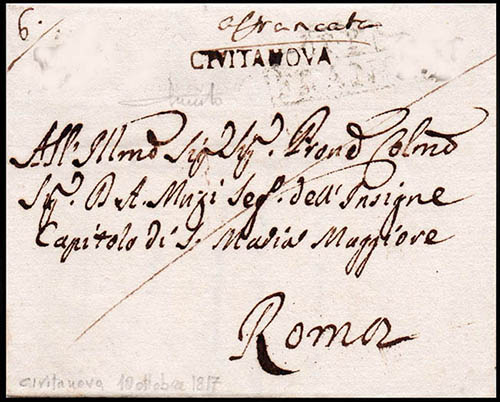 6.
affrancata
CIVITANOVA
All' Illmo Sigr Sigr Prone Colmo
Sigr D A. Muzi Segr. dell' Insigne
Capitolo di S. Maria Maggiore
Roma
civitanova 10 ottobre 1817